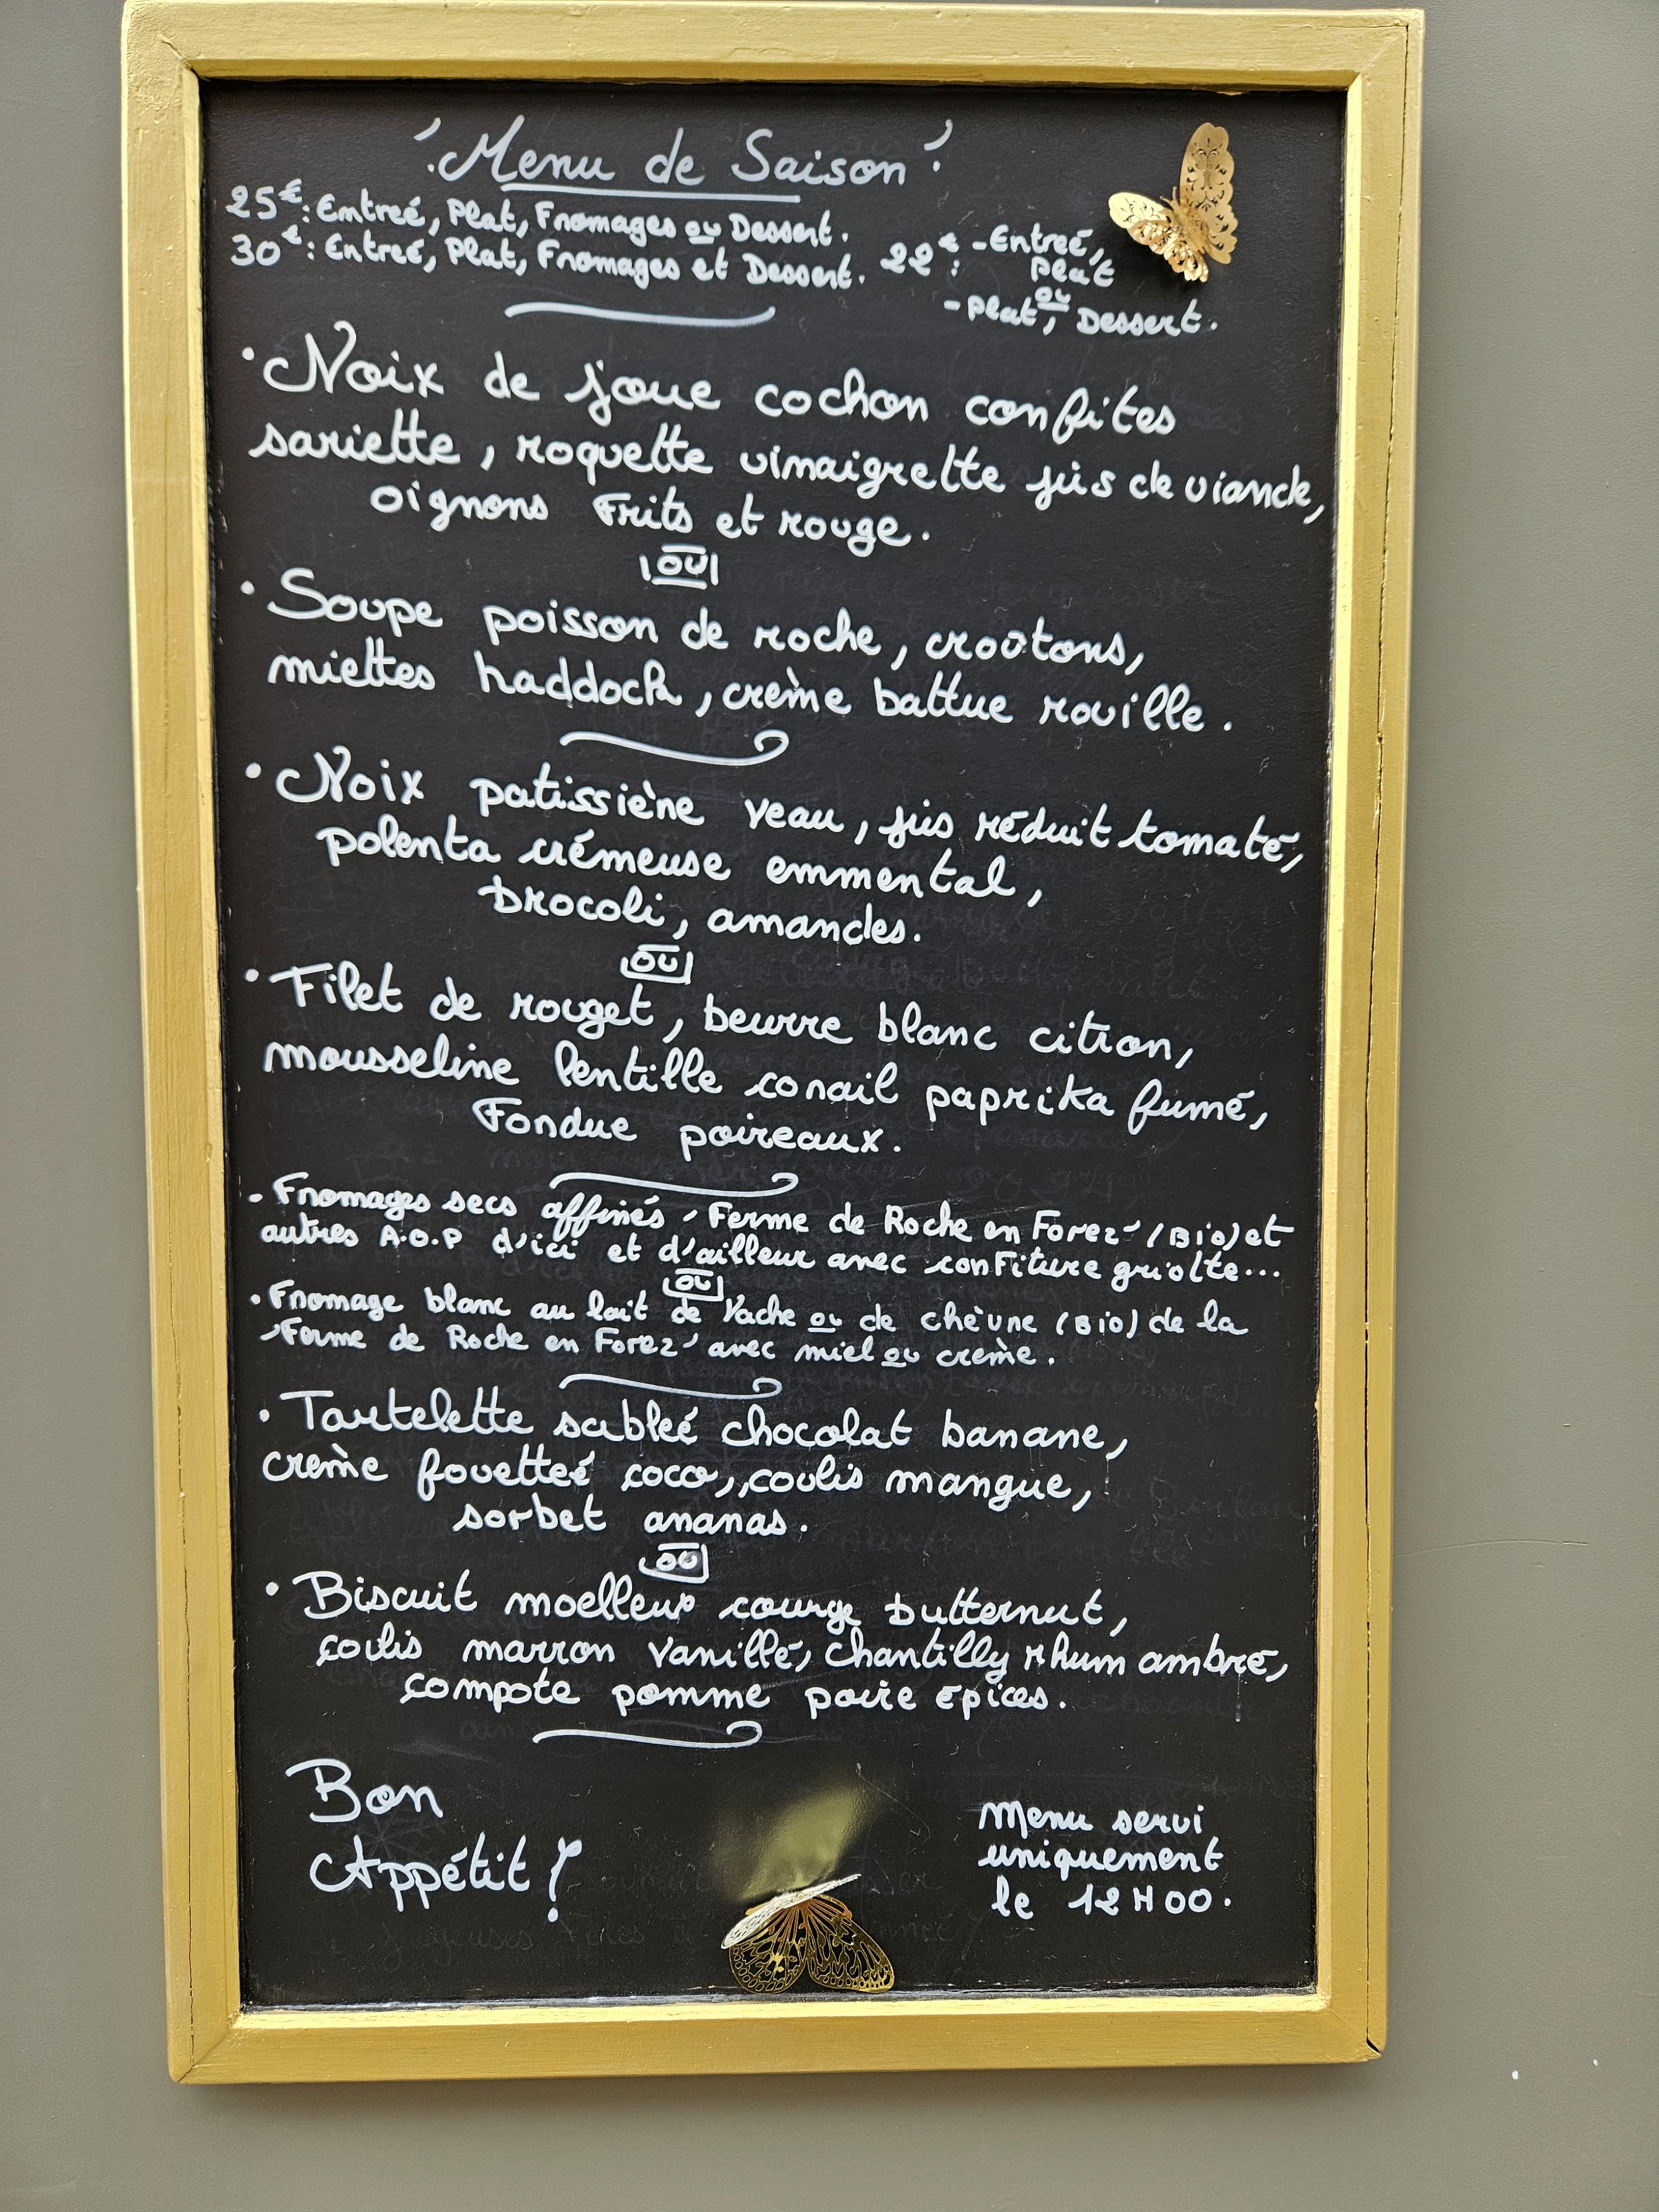 'Menu de Saison'
25€: Entreé, Plat, Fromages ou Dessert.
30€: Entreé, Plat, Fromages et Dessert.
22€: -Entreé, Plat
ou
-Plat, Dessert.
• Noix de joue cochon confites
sariette, roquette vinaigrette jus de viande,
oignons Frits et rouge.
OU
• Soupe poisson de roche, croûtons,
miettes haddock, crème battue rouille.
• Noix patissière veau, jus réduit tomaté,
polenta crémeuse emmental,
brocoli, amandes.
OU
• Filet de rouget, beurre blanc citron,
mousseline lentille corail paprika fumé,
Fondue poireaux.
• Fromages secs affinés 'Ferme de Roche en Forez' (Bio) et
autres A.O.P d'ici et d'ailleur avec confiture griotte...
OU
• Fromage blanc au lait de Vache ou de chèvre (Bio) de la
'Ferme de Roche en Forez' avec miel ou crème.
• Tartelette sableé chocolat banane,
crème fouetteé coco, coulis mangue,
sorbet ananas.
OU
• Biscuit moelleux courge butternut,
coulis marron vanillé, chantilly rhum ambré,
compote pomme poire épices.
Bon
Appétit!
Menu servi
uniquement
le 12H00.